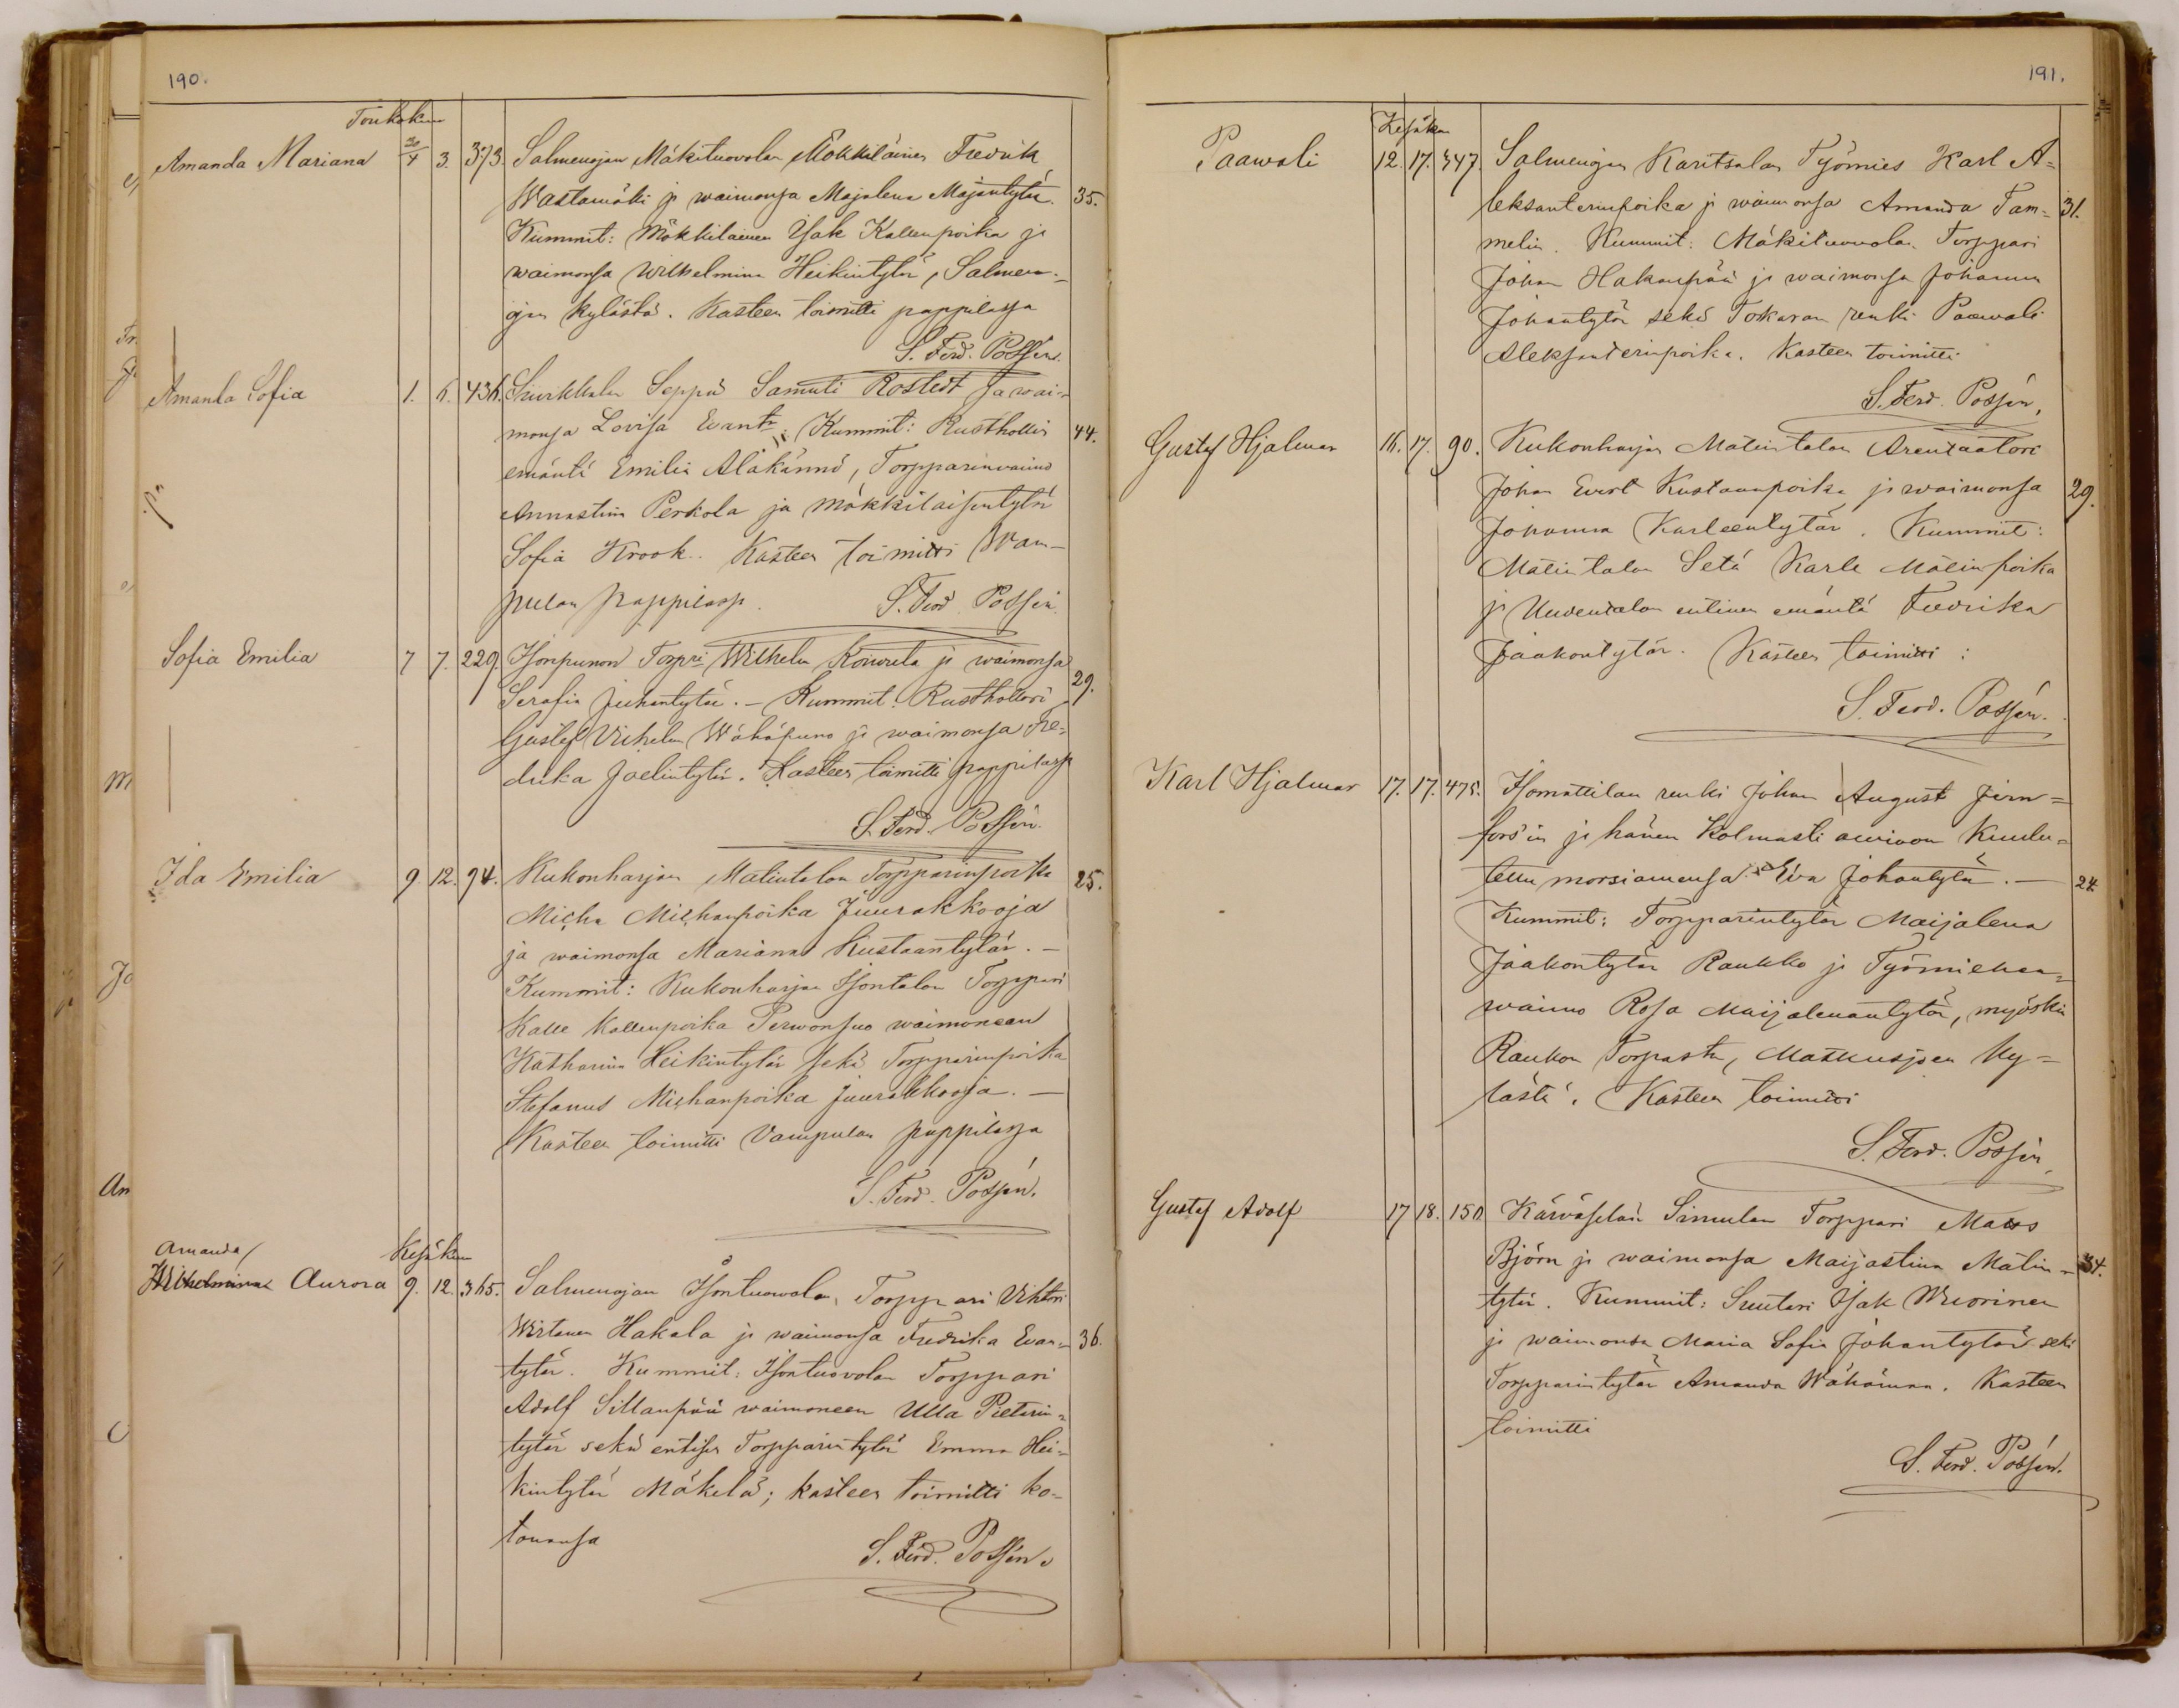 190.
Toukokuu
Amanda Mariana 30/4 3. 373. Salmenojan Mäkituovolan Mökkiläinen Fredrik
Wastamäki ja waimonsa Majalena Majantytär. 35.
Kummit: Mökkiläinen Isak Kallenpoika ja
waimonsa Wilhelmina Heikintytär, Salmen=
ojan kylästä. Kasteen toimitti pappilassa
S. Ferd. Possén.
Amanda Sofia 1. 6. 436. Seppä Samuli Rostedt ja wai=
monsa Lovisa Evantr. Kummit: Rusthollin 44.
emäntä Emilia Alakännö, Torpparinvaimo
Annastina Perkola ja mökkiläisentytär
Sofia Krook. Kasteen toimitti Wam-
pulan pappilassa. S. Ferd. Possén.
Sofia Emilia 7 7. 229. Isonpunon Torpri Wilhelm Koiwula ja waimonsa
Serafia Juhantytär. - Kummit: Rusthollari 29.
Gustaf Vihelm Wähäpuno ja waimonsa Fre=
drika Joelintytär. Kasteen toimitti pappilassa
S. Ferd. Possén.
Ida Emilia 9. 12. 94. Kukonharjan Matintalon Torpparinpoika 25.
Micha Michanpoika Juurakkooja
ja waimonsa Mariana Kustaantytär. -
Kummit: Kukonharjan Isontalon Torppari
Kalle Kallenpoika Perwonsuo waimoneen
Katharina Heikintytär sekä Torpparinpoika
Stefanus Michanpoika Juurakkooja. -
Kasteen toimitti Vampulan pappilassa
S. Ferd. Possén.
Kesäkuu
Amanda/
Wilhelmina Aurora 9. 12. 365. Salmenojan Isontuowolan Torppari Vihtori
Wirtanen Hakala ja waimonsa Fredrika Evan= 36.
tytär. Kummit: Isontuovolan Torppari
Adolf Sillanpää waimoneen Ulla Pieterin=
tytär sekä entisen Torpparin tytär Emma Hei=
kintytär Mäkelä; kasteen toimitti ko-
tonansa
S. Ferd. Possén.
191.
Kesäkuu
Paawali 12. 17. 347. Salmenojan Karitsalan Työmies Karl A=
leksanterinpoika ja waimonsa Amanda Tam= 31.
melin. Kummit: Mäkituovolan Torppari
Johan Hakanpää ja waimonsa Johanna
Johantytär sekä Tokaran renki Paawali
Aleksanterinpoika. Kasteen toimitti
S. Ferd. Possén,
Gustaf Hjalmar 16. 17. 90. Kukonharjan Matintalon Arentaatori
Johan Evert Kustaanpoika ja waimonsa 29.
Johanna Karleentytär. Kummit:
Matintalon Setä Karle Matinpoika
ja Uudentalon entinen emäntä Fredrika
Jaakontytär. Kasteen toimitti:
S. Ferd. Possén.
Karl Hjalmar 17. 17. 475. Isomattilan renki Johan August Jern=
fors'in ja hänen kolmasti awioon kuulu=
tettu morsiamensa Eva Johantytär. - 24
Kummit: Torpparintytär Maijalena
Jaakontytär Raukko ja Työmiehen=
waimo Rosa Maijalenantytär, myöskin
Raukon Torpasta, Matkusjoen ky=
lästä. Kasteen toimitti
S. Ferd. Possén,
Gustaf Adolf 17 18. 150 Kärväselän Simulan Torppari Matts
Björn ja waimonsa Maijastina Matin= 34.
tytär. Kummit: Suutari Isak Wuorinen
ja waimonsa Maria Sofia Johantytär sekä
Torpparintytär Amanda Wähämaa. Kasteen
toimitti
S. Ferd. Possén.